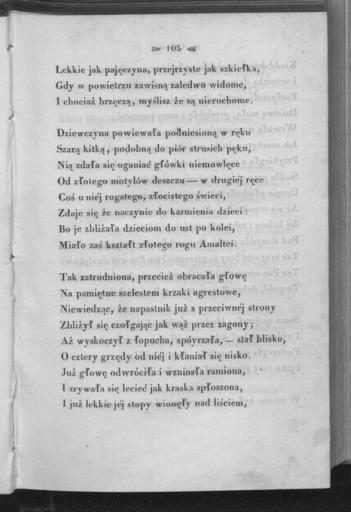 105
Lekkie jak pajęczyna, przejrzyste jak szkiełka,
Gdy w powietrzu zawisną zaledwo widome,
I chociaż brzęczą, myślisz że są nieruchome.
Dziewczyna powiewała podniesioną w ręku
Szarą kitką, podobną do piór strusich pęku,
Nią zdała się oganiać główki niemowlęce
Od złotego motylów deszczu — w drugiéj ręce
Coś u niéj rogatego, złocistego świeci,
Zdaje się że naczynie do karmienia dzieci:
Bo je zbliżała dzieciom do ust po kolei,
Miało zaś kształt złotego rogu Amaltei.
Tak zatrudniona, przecież obracała głowę
Na pamiętne szelestem krzaki agrestowe,
Niewiedząc, że napastnik już z przeciwnéj strony
Zbliżył się czołgając jak wąż przez zagony;
Aż wyskoczył z łopucha, spóyrzała, — stał blisko,
O cztery grzędy od niéj i kłaniał się nisko.
Już głowę odwróciła i wzniosła ramiona,
I zrywała się lecieć jak kraska spłoszona,
I już lekkie jéj stopy wionęły nad liściem,